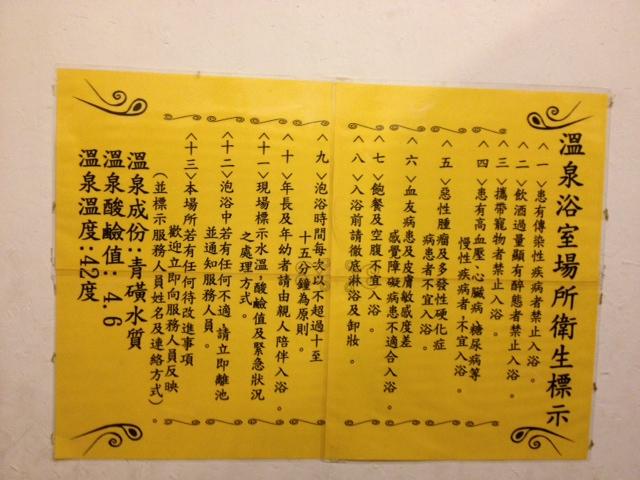 溫泉浴室場所衛生標示
〈一〉患有傳染性疾病者禁止入浴。
〈二〉飲酒過量顯有醉態者禁止入浴。
〈三〉攜帶寵物者禁止入浴。
〈四〉患有高血壓,心臟病,糖尿病等
慢性疾病者,不宜入浴。
〈五〉惡性腫瘤及多發性硬化症
病患者不宜入浴。
〈六〉血友病患及皮膚敏感度差
感覺障礙病患不適合入浴。
〈七〉飽餐及空腹不宜入浴。
〈八〉入浴前請徹底淋浴及卸妝。
〈九〉泡浴時間每次以不超過十至
十五分鐘為原則。
〈十〉年長及年幼者請由親人陪伴入浴。
〈十一〉現場標示水溫,酸鹼值及緊急狀況
之處理方式。
〈十二〉泡浴中若有任何不適,請立即離池
並通知服務人員。
〈十三〉本場所若有任何待改進事項
歡迎立即向服務人員反映
(並標示服務人員姓名及連絡方式)。
溫泉成份:青磺水質
溫泉酸鹼值:4.6
溫泉溫度:42度